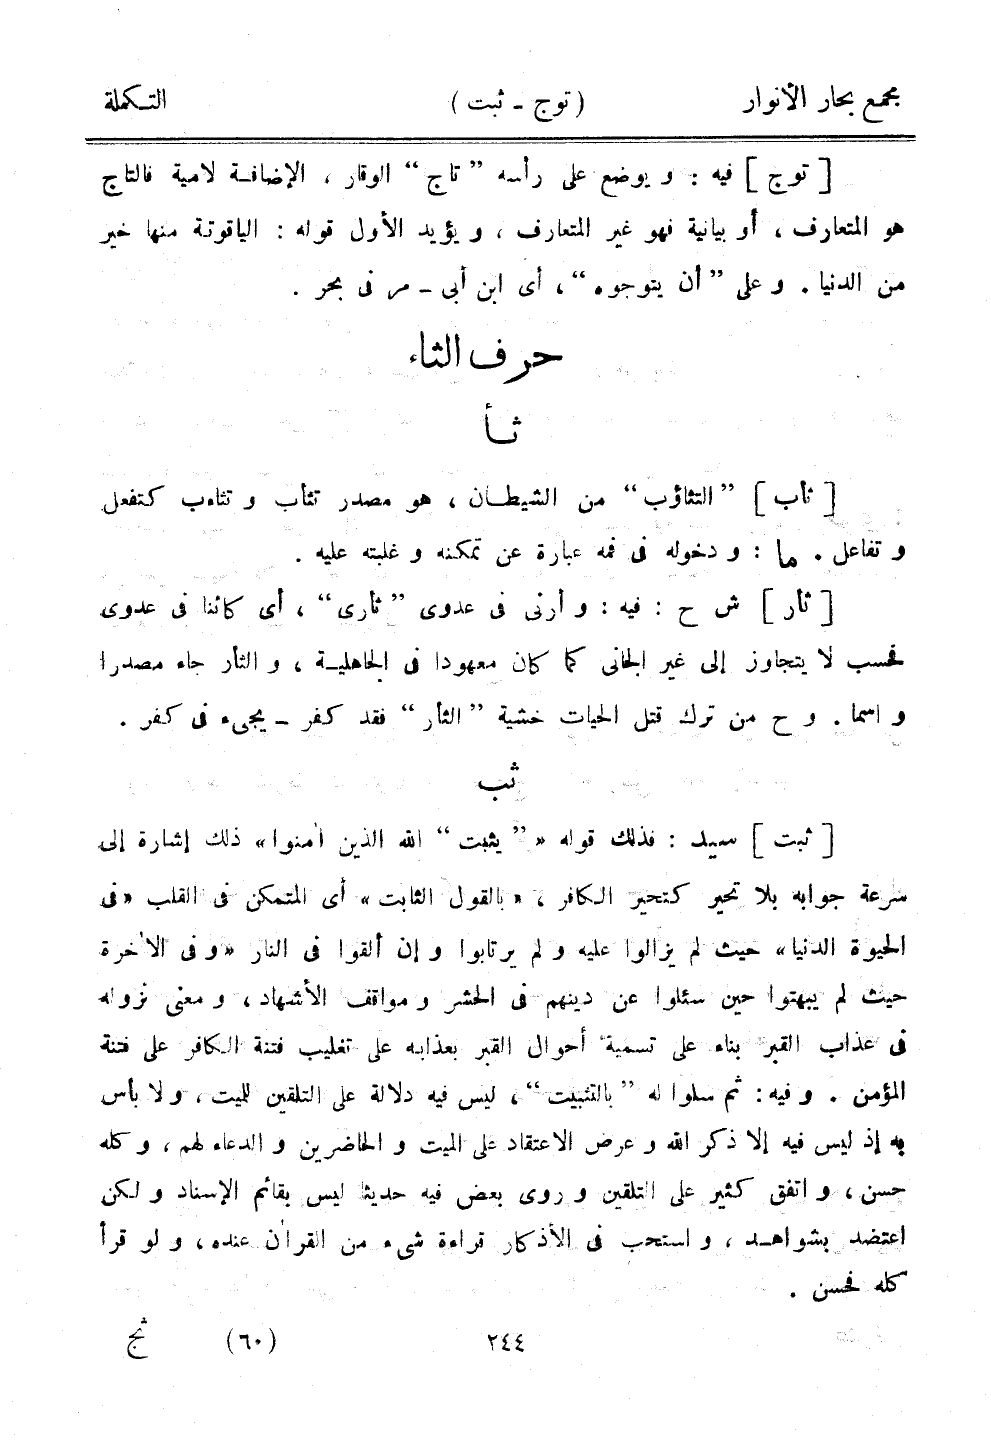 مجمع بحار الأنوار (توج ـ ثبت) التكملة
[توج] فيه : و يوضع على رأسه ”تاج“ الوقار ، الإضافة لامية فالتاج
هو المتعارف ، أو بيانية فهو غير المتعارف ، و يؤيد الأول قوله : الياقوتة منها خير
من الدنيا . و على ”أن يتوجوه“ ، أى ابن أبى ـ مر فى بحر .
حرف الثاء
ثأ
[ثأب] ”التثاؤب“ من الشيطان ، هو مصدر تثأب و تثاءب كتفعل
و تفاعل . ما : و دخوله فى فمه عبارة عن تمكنه و غلبته عليه .
[ثأر] ش ح : فيه : و أرنى فى عدوى ”ثأرى“ ، أى كائنا فى عدوى
فحسب لا يتجاوز إلى غير الجانى كما كان معهودا فى الجاهلية ، و الثأر جاء مصدرا
و اسما . و ح من ترك قتل الحيات خشية ”الثأر“ فقد كفر ـ يجىء فى كفر .
ثب
[ثبت] سيد : فذلك قوله « ”يثبت“ الله الذين اٰمنوا» ذلك إشارة إلى
سرعة جوابه بلا تحير كتحير الكافر ، «بالقول الثابت» أى المتمكن فى القلب «فى
الحيوة الدنيا» حيث لم يزالوا عليه و لم يرتابوا و إن ألقوا فى النار «و فى الاٰخرة
حيث لم يبهتوا حين سئلوا عن دينهم فى الحشر و مواقف الأشهاد ، و معنى نزوله
فى عذاب القبر بناء على تسمية أحوال القبر بعذابه على تغليب فتنة الكافر على فتنة
المؤمن . و فيه : ثم سلوا له ”بالتثبيت“ ، ليس فيه دلالة على التلقين للميت ، و لا بأس
به إذ ليس فيه إلا ذكر الله و عرض الاعتقاد على الميت و الحاضرين و الدعاء لهم ، و كله
حسن ، و اتفق كثير على التلقين و روى بعض فيه حديثا ليس بقائم الإسناد و لكن
اعتضد بشواهد ، و استحب فى الأذكار قراءة شىء من القراٰن عنده ، و لو قرأ
كله فحسن .
٢٤٤ (٦٠) ثج